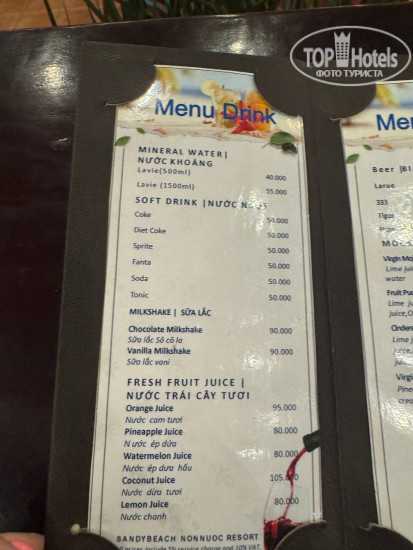 TOP Hotels
ФОТО ТУРИСТА
Menu Drink
MINERAL WATER|
NƯỚC KHOÁNG
Lavie(500ml) 40.000
Lavie (1500ml) 55.000
SOFT DRINK |NƯỚC
Coke 50.000
Diet Coke 50.000
Sprite 50.000
Fanta 50.000
Soda 50.000
Tonic 50.000
MILKSHAKE| SỮA LẮC
Chocolate Milkshake 90.000
Sữa lắc Sô cô la
Vanilla Milkshake 90.000
Sữa lắc vani
FRESH FRUIT JUICE |
NƯỚC TRÁI CÂY TƯƠI
Orange Juice 95.000
Nước cam tươi
Pineapple Juice 80.000
Nước ép dứa
Watermelon Juice 80.000
Nước ép dưa hấu
Coconut Juice 105.000
Nước dừa tươi
Lemon Juice 80.000
Nước chanh
SANDYBEACH NONNUOC RESORT
prices include 5% service charge and 10% VAT.
Me
Beer |BI
Larue
333
Tiger
Virgin Mo
Lime ju
water
Fruit Pu
juice,O
Cinder
Lime j
juice,
juice
Virgi
Pine
crea